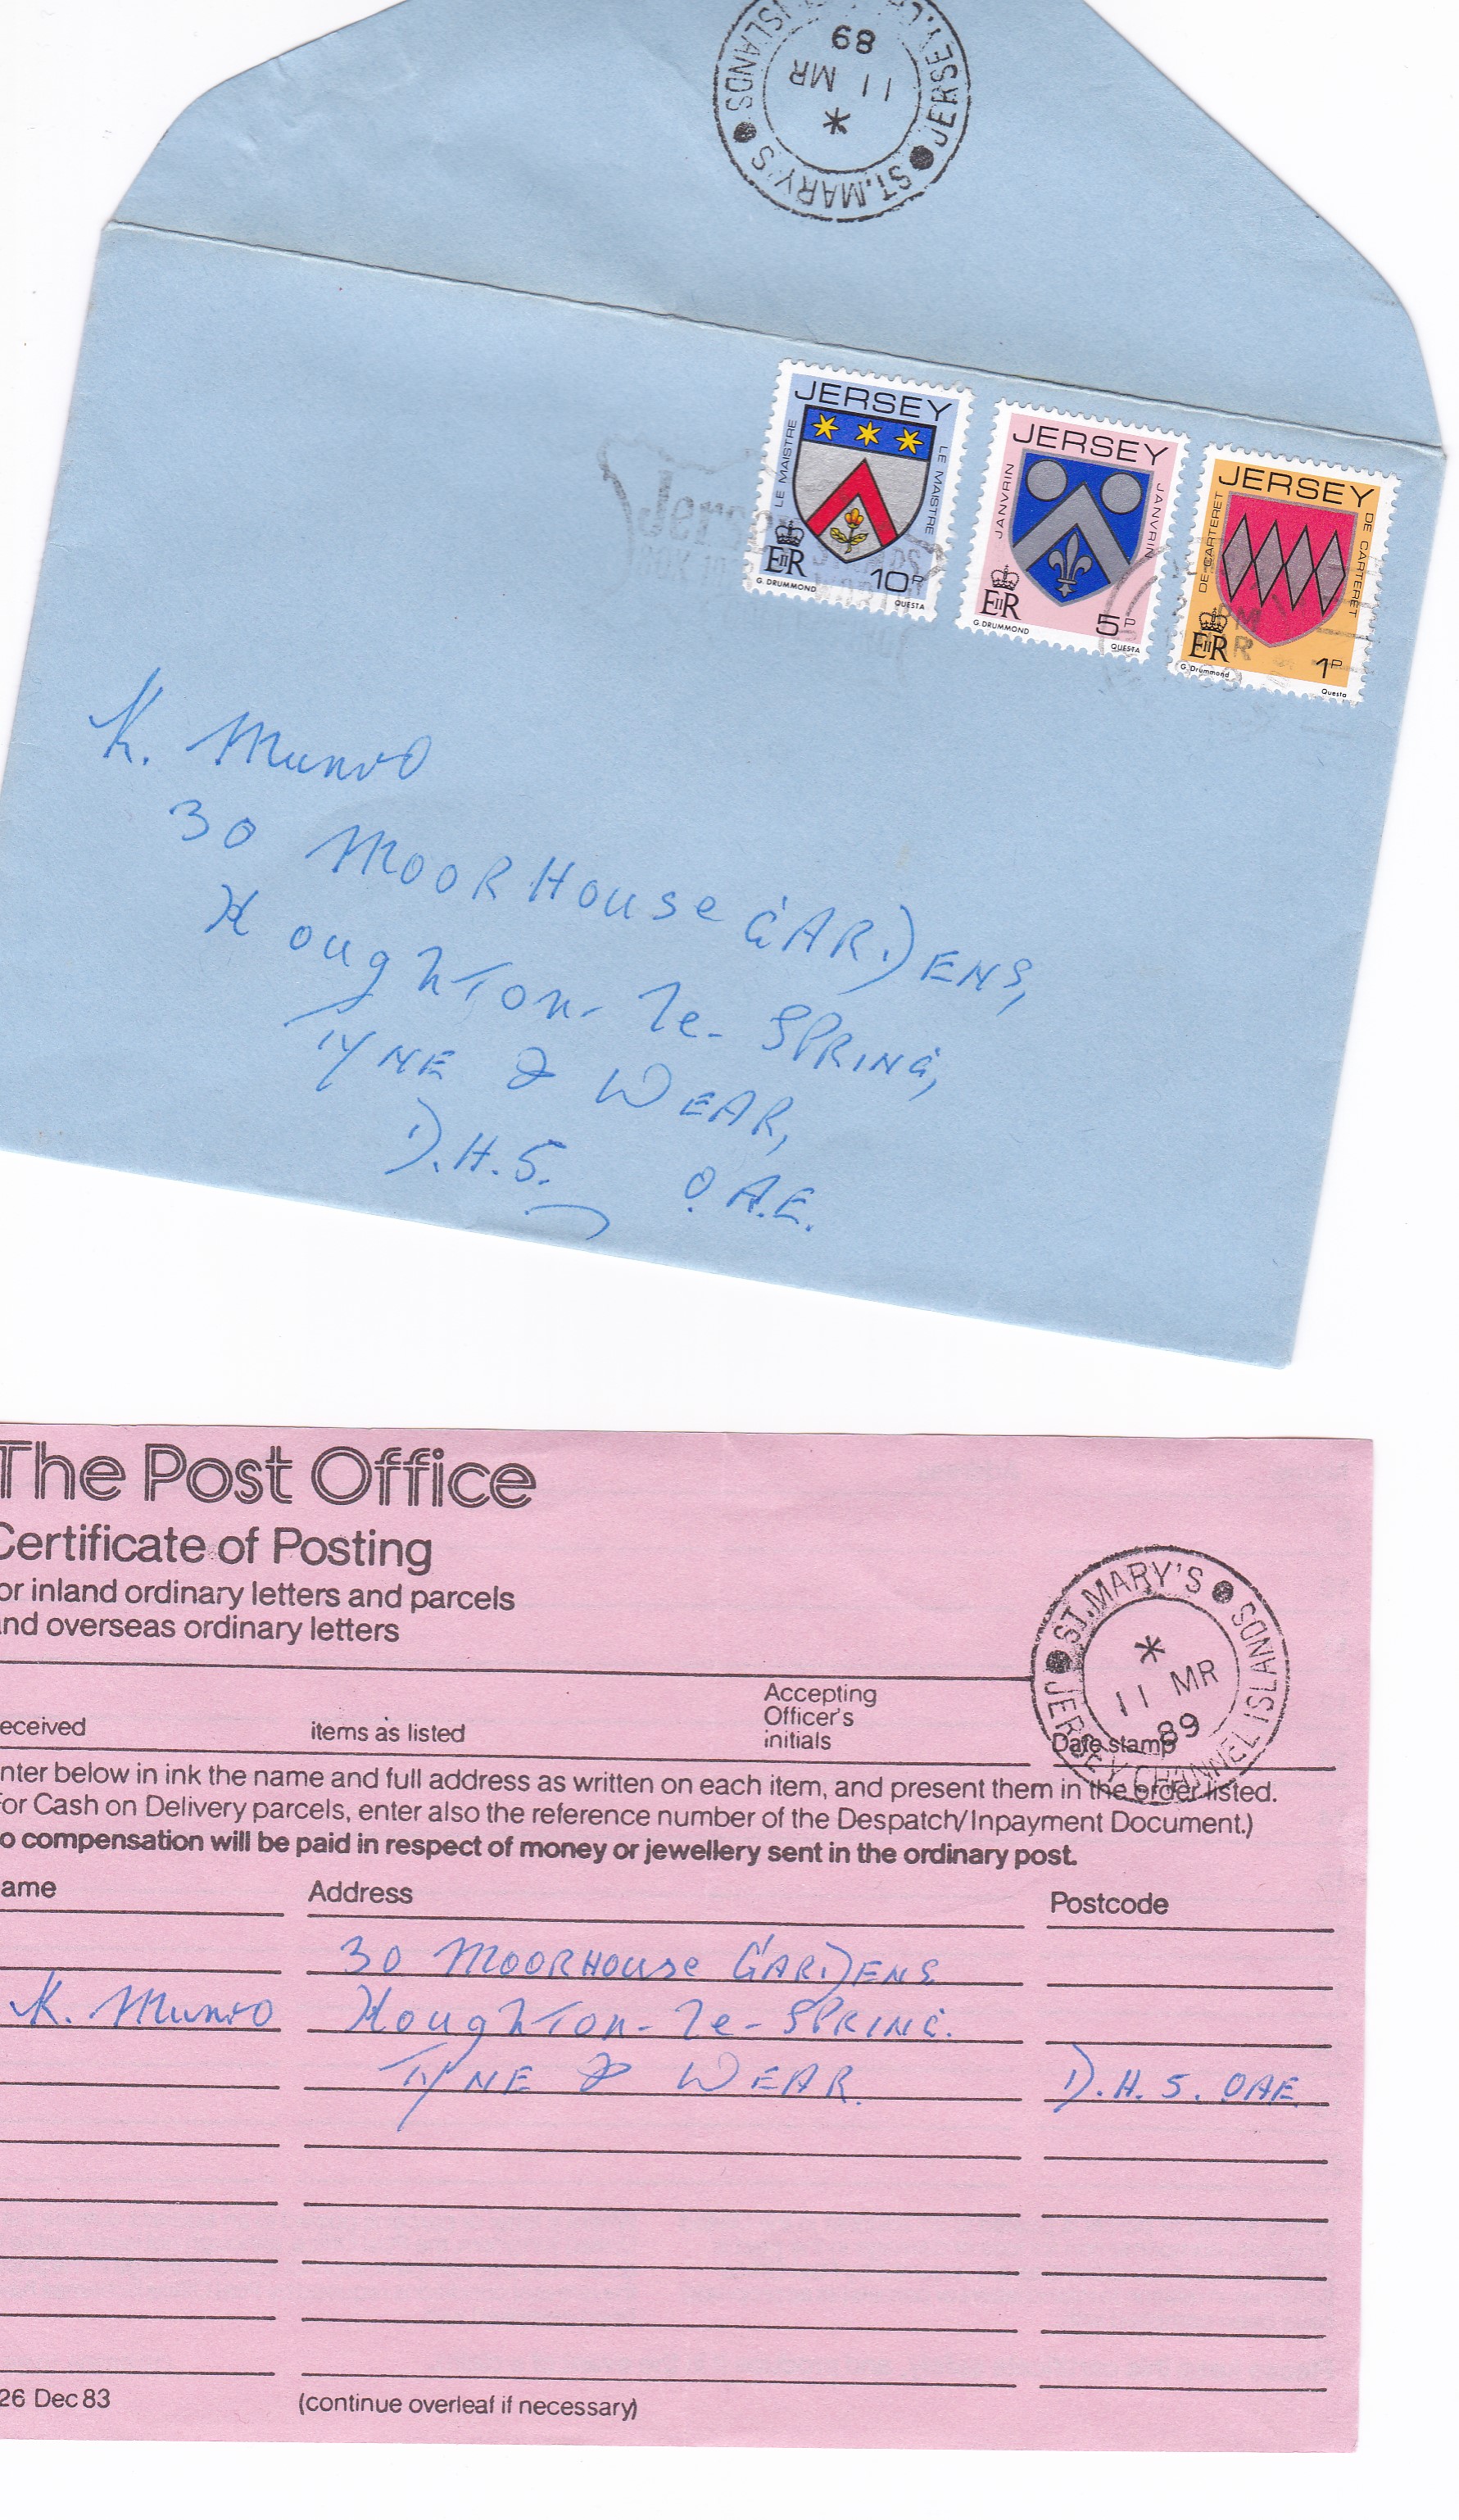 JERSEY. CH
ISLANDS
ST. MARY'S
*
11 MR
89
JERSEY
LE MAISTRE
LE MAISTRE
EIIR
10P
G. DRUMMOND
QUESTA
JERSEY
JANVRIN
JANVRIN
EIIR
5P
G. DRUMMOND
QUESTA
JERSEY
DE CARTERET
DE CARTERET
EIIR
1P
G. Drummond
Questa
Jersey
K. Munro
30 MOORHOUSE GARDENS,
Houghton-le-SPRING,
TYNE & WEAR,
D.H.5. O.A.E.
The Post Office
Certificate of Posting
or inland ordinary letters and parcels
nd overseas ordinary letters
ST. MARY'S
JERSEY CHANNEL ISLANDS
*
11 MR
89
eceived
items as listed
Accepting
Officer's
initials
Date stamp
nter below in ink the name and full address as written on each item, and present them in the order listed.
For Cash on Delivery parcels, enter also the reference number of the Despatch/Inpayment Document.)
o compensation will be paid in respect of money or jewellery sent in the ordinary post.
ame Address Postcode
30 MOORHOUSE GARDENS
K. Munro Houghton-le-SPRING.
TYNE & WEAR. D.H.5. OAE.
26 Dec 83
(continue overleaf if necessary)